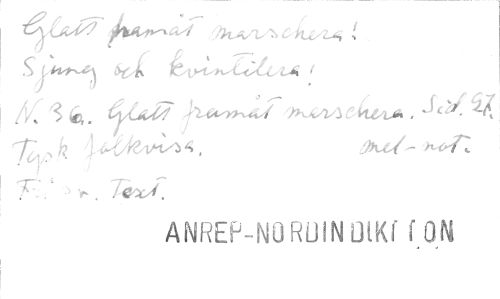 Glatt framåt marschera!
Sjung och kvintilera!
N. 36. Glatt framåt marschera. Sid. 27.
Tysk folkvisa. mel-not.
Text.
ANREP-NORDIN DIKTION